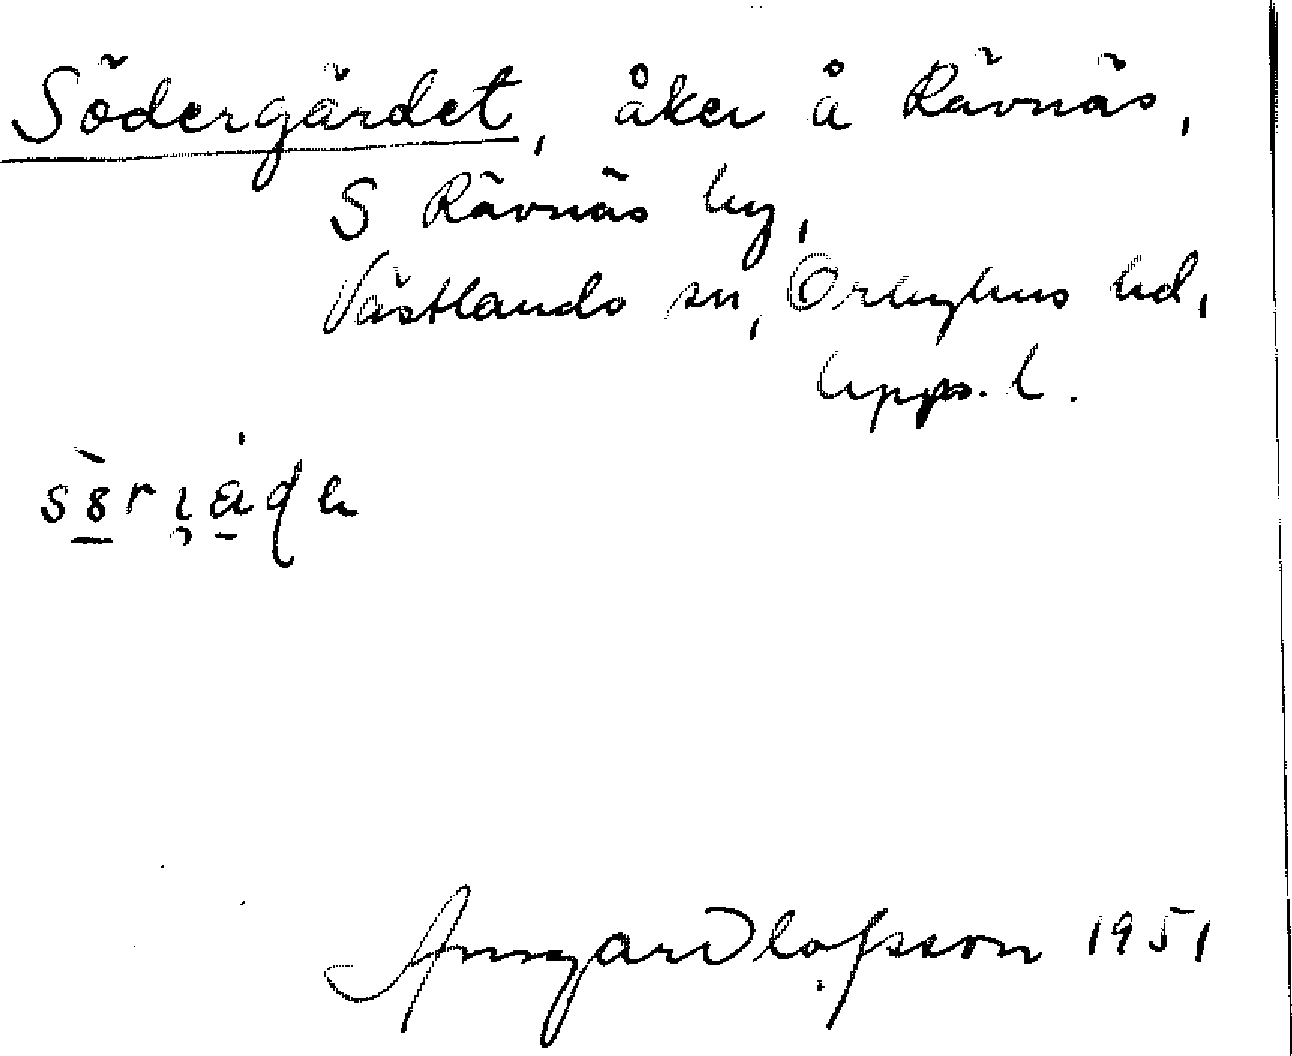 Södergärdet, åker å Rävnäs,
S Rävnäs by,
Västlands sn, Örbyhus hd,
Upps. l.
Ansgar Olofsson 1951